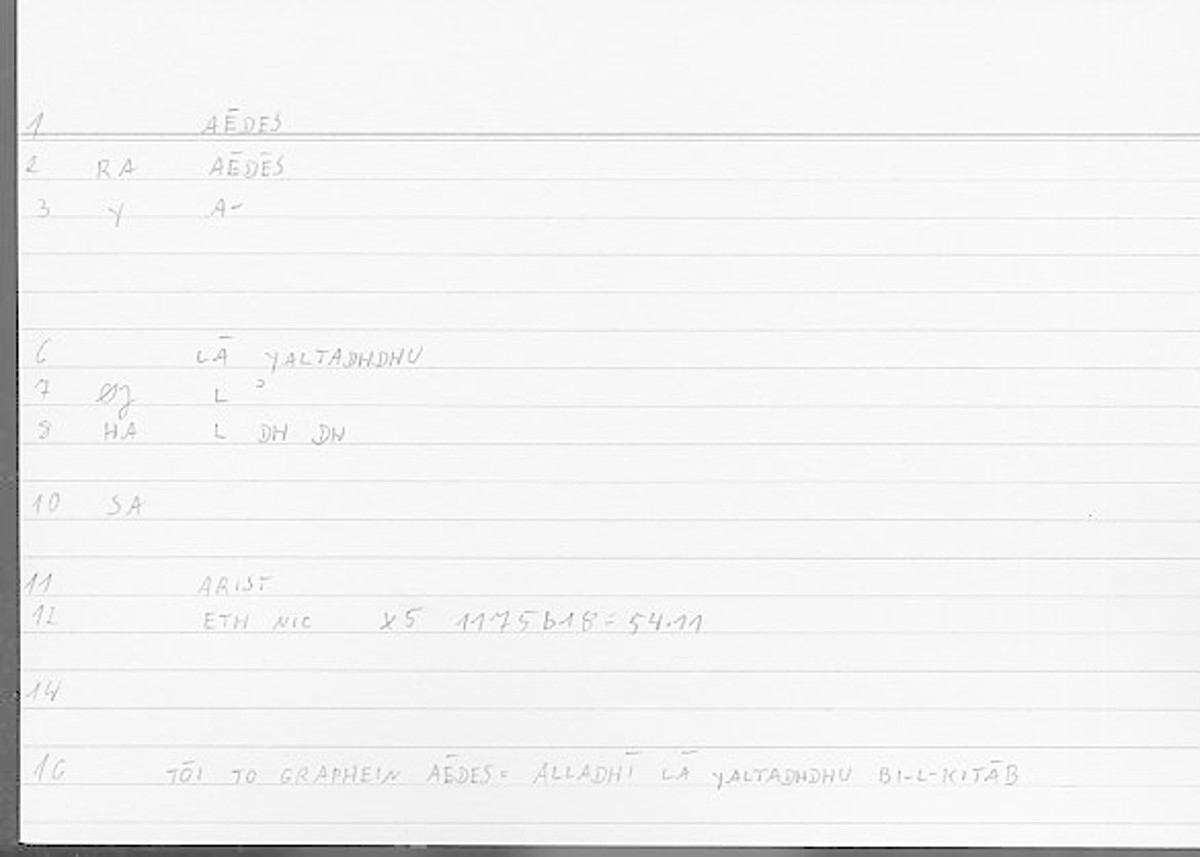 1 AĒDES
2 RA AĒDĒS
3 Y A-
6 LĀ YALTADHDHU
7 L ʾ
8 HA L DH DH
10 SA
11 ARIST
12 ETH NIC X5 1175b18 = 54.11
14
16 TŌI TO GRAPHEIN AĒDES = ALLADHĪ LĀ YALTADHDHU BI-L-KITĀB